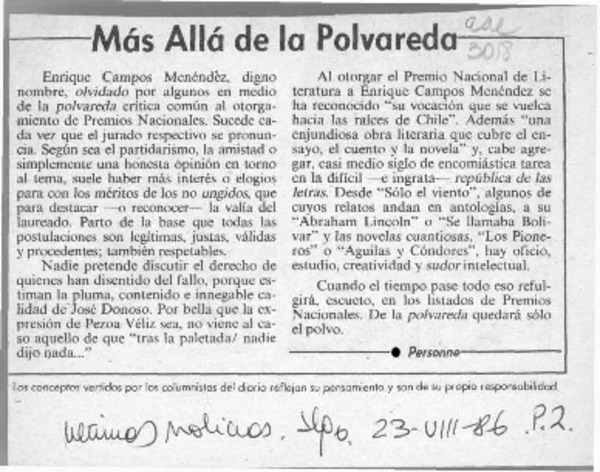 Más Allá de la Polvareda
aae
3018
Enrique Campos Menéndez, digno
nombre, olvidado por algunos en medio
de la polvareda crítica común al otorga-
miento de Premios Nacionales. Sucede ca-
da vez que el jurado respectivo se pronun-
cia. Según sea el partidarismo, la amistad o
simplemente una honesta opinión en torno
al tema, suele haber más interés o elogios
para con los méritos de los no ungidos, que
para destacar —o reconocer— la valía del
laureado. Parto de la base que todas las
postulaciones son legítimas, justas, válidas
y procedentes; también respetables.
Nadie pretende discutir el derecho de
quienes han disentido del fallo, porque es-
timan la pluma, contenido e innegable ca-
lidad de José Donoso. Por bella que la ex-
presión de Pezoa Véliz sea, no viene al ca-
so aquello de que “tras la paletada/ nadie
dijo nada...”
Al otorgar el Premio Nacional de Li-
teratura a Enrique Campos Menéndez se
ha reconocido “su vocación que se vuelca
hacia las raíces de Chile”. Además “una
enjundiosa obra literaria que cubre el en-
sayo, el cuento y la novela” y, cabe agre-
gar, casi medio siglo de encomiástica tarea
en la difícil —e ingrata— república de las
letras. Desde “Sólo el viento”, algunos de
cuyos relatos andan en antologías, a su
“Abraham Lincoln” o “Se llamaba Bolí-
var” y las novelas cuantiosas, “Los Pione-
ros” o “Aguilas y Cóndores”, hay oficio,
estudio, creatividad y sudor intelectual.
Cuando el tiempo pase todo eso reful-
girá, escueto, en los listados de Premios
Nacionales. De la polvareda quedará sólo
el polvo.
● Personne
Los conceptos vertidos por los columnistas del diario reflejan su pensamiento y son de su propia responsabilidad
Ultimas Noticias. Stgo. 23-VIII-86 P.2.